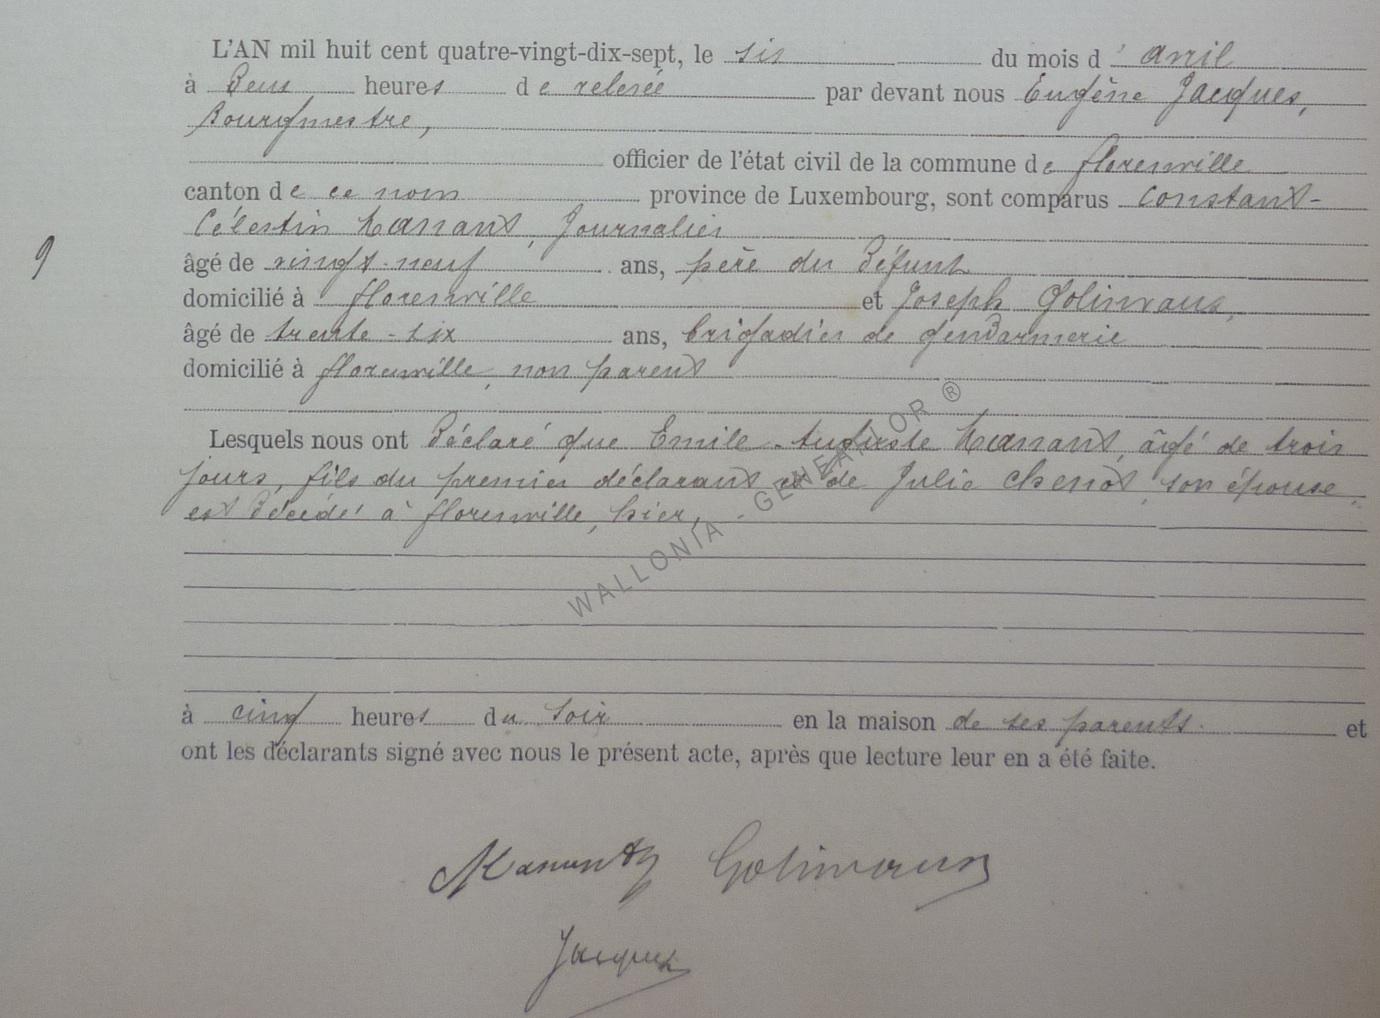 L'AN mil huit cent quatre-vingt-dix-sept, le six du mois d'avril
à Deux heures de relevée par devant nous Eugène Jacques,
Bourgmestre,
officier de l'état civil de la commune de florenville
canton de ce nom province de Luxembourg, sont comparus Constant-
Célestin Manant, Journalier
9
âgé de vingt-neuf ans, père du Défunt
domicilié à florenville et Joseph Golinvaux,
âgé de trente-six ans, brigadier de gendarmerie
domicilié à florenville, non parent
Lesquels nous ont Déclaré que Emile-Auguste Manant, âgé de trois
jours, fils du premier déclarant et de Julie Chenot, son épouse,
est Décédé à florenville, hier,
WALLONIA - GENEALOR ®
à cinq heures du soir en la maison de ses parents. et
ont les déclarants signé avec nous le présent acte, après que lecture leur en a été faite.
Golinvaux
Jacques